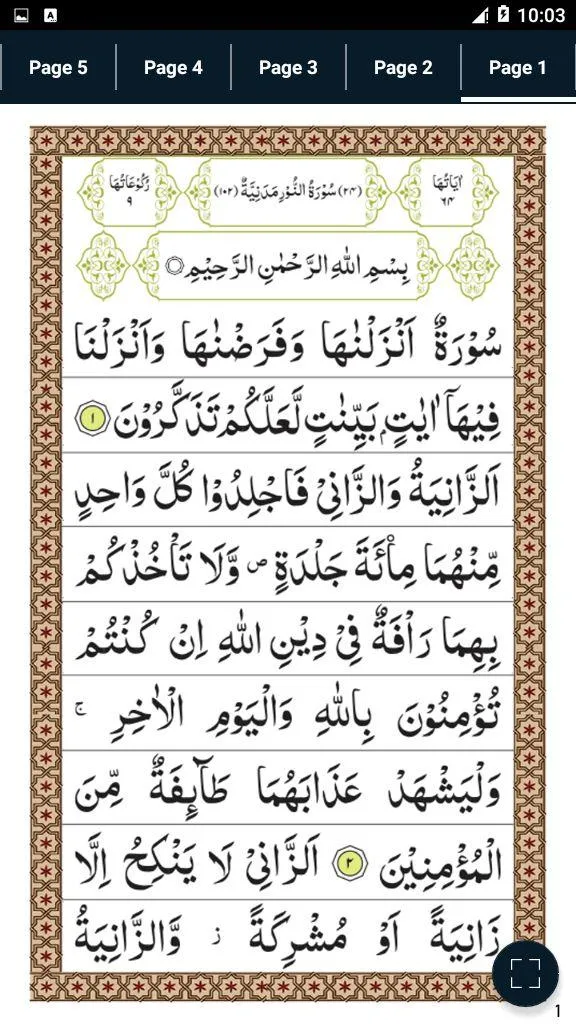 10:03
Page 5 Page 4 Page 3 Page 2 Page 1
اٰيَاتُهَا ٦٤ (٢٤) سُوْرَةُ النُّوْرِ مَدَنِيَّةٌ (١٠٢) رُكُوْعَاتُهَا ٩
بِسْمِ اللّٰهِ الرَّحْمٰنِ الرَّحِيْمِ
سُوْرَةٌ اَنْزَلْنٰهَا وَفَرَضْنٰهَا وَاَنْزَلْنَا
فِيْهَاۤ اٰيٰتٍۭ بَيِّنٰتٍ لَّعَلَّكُمْ تَذَكَّرُوْنَ ١
اَلزَّانِيَةُ وَالزَّانِيْ فَاجْلِدُوْا كُلَّ وَاحِدٍ
مِّنْهُمَا مِائَةَ جَلْدَةٍ ص وَّلَا تَاْخُذْكُمْ
بِهِمَا رَاْفَةٌ فِيْ دِيْنِ اللّٰهِ اِنْ كُنْتُمْ
تُؤْمِنُوْنَ بِاللّٰهِ وَالْيَوْمِ الْاٰخِرِ ج
وَلْيَشْهَدْ عَذَابَهُمَا طَآىِٕفَةٌ مِّنَ
الْمُؤْمِنِيْنَ ٢ اَلزَّانِيْ لَا يَنْكِحُ اِلَّا
زَانِيَةً اَوْ مُشْرِكَةً ز وَّالزَّانِيَةُ
1